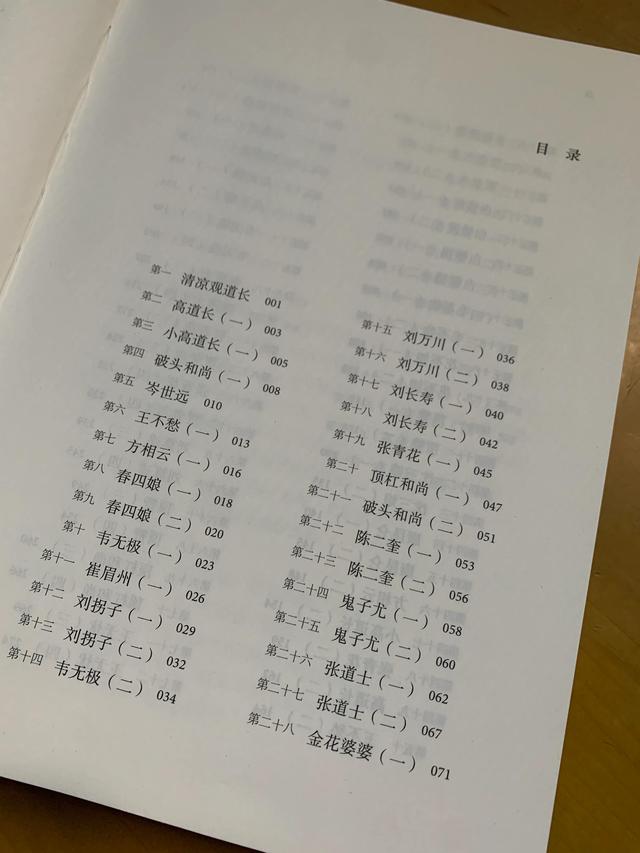 目 录
第一 清凉观道长 001
第二 高道长（一） 003
第三 小高道长（一） 005
第四 破头和尚（一） 008
第五 岑世远 010
第六 王不愁（一） 013
第七 方相云（一） 016
第八 春四娘（一） 018
第九 春四娘（二） 020
第十 韦无极（一） 023
第十一 崔眉州（一） 026
第十二 刘拐子（一） 029
第十三 刘拐子（二） 032
第十四 韦无极（二） 034
第十五 刘万川（一） 036
第十六 刘万川（二） 038
第十七 刘长寿（一） 040
第十八 刘长寿（二） 042
第十九 张青花（一） 045
第二十 顶杠和尚（一） 047
第二十一 破头和尚（二） 051
第二十二 陈二奎（一） 053
第二十三 陈二奎（二） 056
第二十四 鬼子尤（一） 058
第二十五 鬼子尤（二） 060
第二十六 张道士（一） 062
第二十七 张道士（二） 067
第二十八 金花婆婆（一） 071